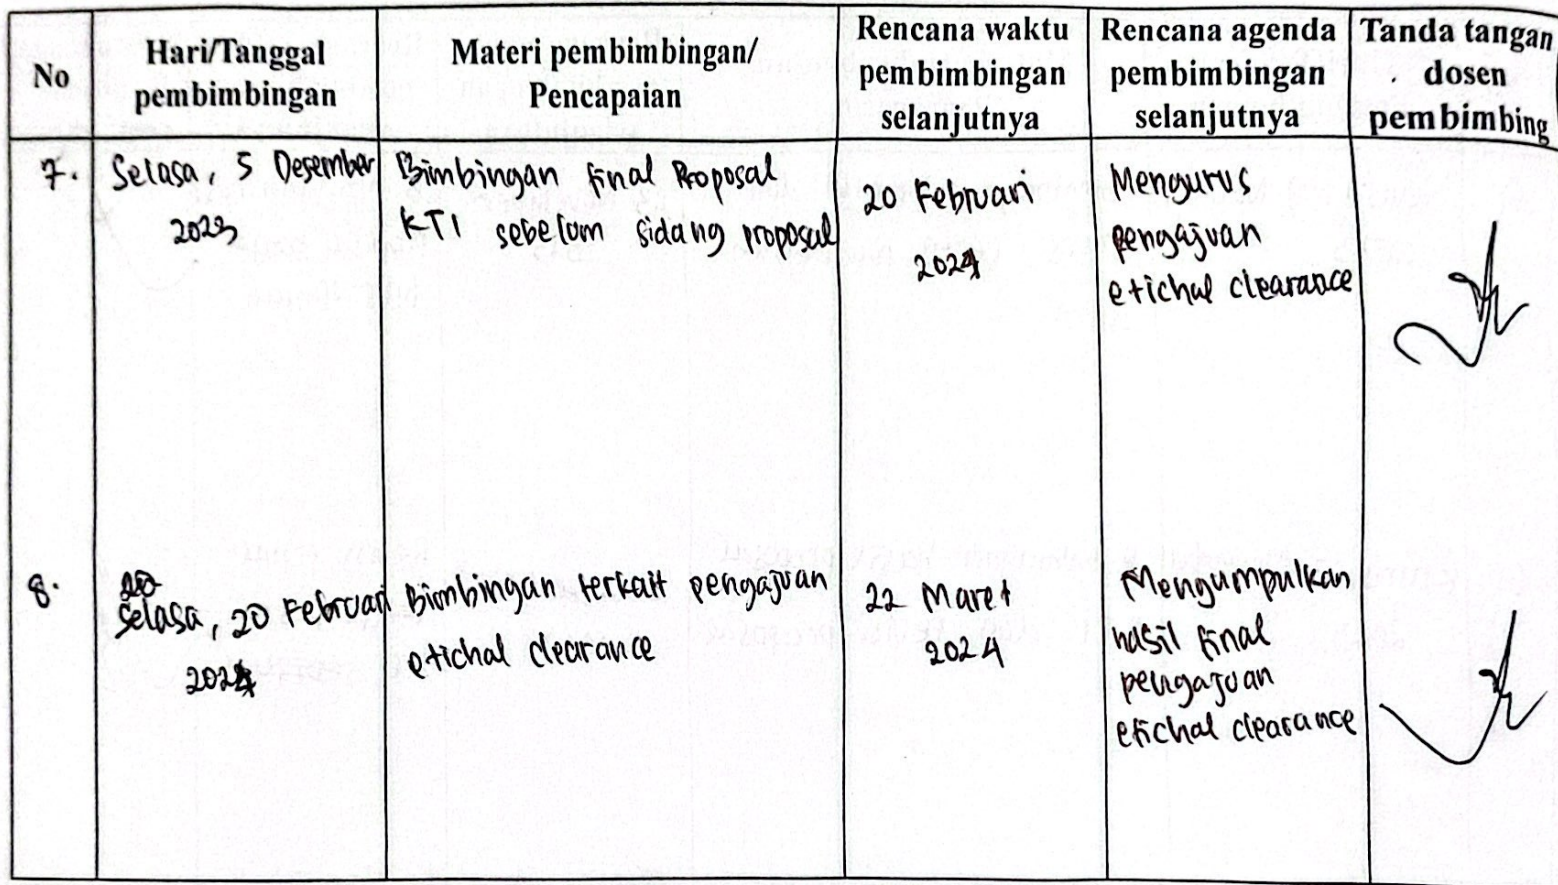 No
Hari/Tanggal
pembimbingan
Materi pembimbingan/
Pencapaian
Rencana waktu
pembimbingan
selanjutnya
Rencana agenda
pembimbingan
selanjutnya
Tanda tangan
dosen
pembimbing
7.
Selasa, 5 Desember
2023
Bimbingan final Proposal
KTI sebelum sidang proposal
20 Februari
2024
Mengurus
pengajuan
etichal clearance
8.
Selasa, 20 Februari
2024
Bimbingan terkait pengajuan
etichal clearance
22 Maret
2024
Mengumpulkan
hasil final
pengajuan
etichal clearance